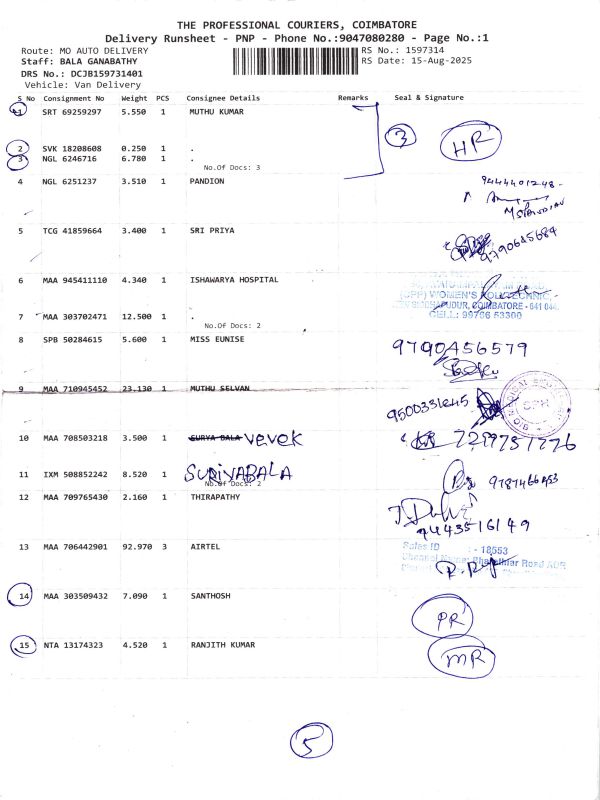 THE PROFESSIONAL COURIERS, COIMBATORE
Delivery Runsheet - PNP - Phone No.:9047080280 - Page No.:1
Route: MO AUTO DELIVERY RS No.: 1597314
Staff: BALA GANABATHY RS Date: 15-Aug-2025
DRS No.: DCJB159731401
Vehicle: Van Delivery
S No Consignment No Weight PCS Consignee Details Remarks Seal & Signature
1 SRT 69259297 5.550 1 MUTHU KUMAR
3 HR
2 SVK 18208608 0.250 1 .
3 NGL 6246716 6.780 1 .
No.Of Docs: 3
4 NGL 6251237 3.510 1 PANDION 9444401248-
5 TCG 41859664 3.400 1 SRI PRIYA 9790645684
6 MAA 945411110 4.340 1 ISHAWARYA HOSPITAL
(CPP) WOMEN'S POLYTECHNIC,
COIMBATORE - 641 044.
CELL: 99766 53300
7 MAA 303702471 12.500 1 .
No.Of Docs: 2
8 SPB 50284615 5.600 1 MISS EUNISE 9790456579
9 MAA 710945452 23.130 1 MUTHU SELVAN
10 MAA 708503218 3.500 1 SURYA BALA vevek 7299751776
11 IXM 508852242 8.520 1 SURIYABALA
No.Of Docs: 2
12 MAA 709765430 2.160 1 THIRAPATHY
9443516149
13 MAA 706442901 92.970 3 AIRTEL
Sales ID : - 18553
14 MAA 303509432 7.090 1 SANTHOSH PR
15 NTA 13174323 4.520 1 RANJITH KUMAR MR
5